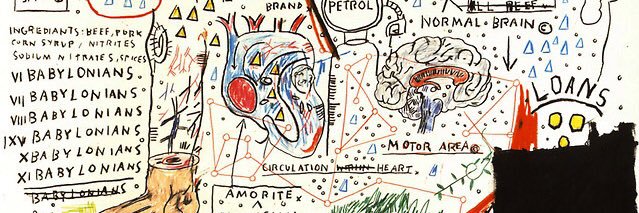 BRAND
PETROL
ALL BEEF
NORMAL·BRAIN ©
INGREDIANTS: BEEF, PORK
CORN SYRUP / NITRITES
SODIUM NITRATES, SPICES
VI BABYLONIANS
VII BABYLONIANS
VIII BABYLONIANS
IXV BABYLONIANS
X BABYLONIANS
XI BABYLONIANS
BABYLONIANS
LOANS
MOTOR AREA ©
CIRCULATION WHIN HEART
AMORITE